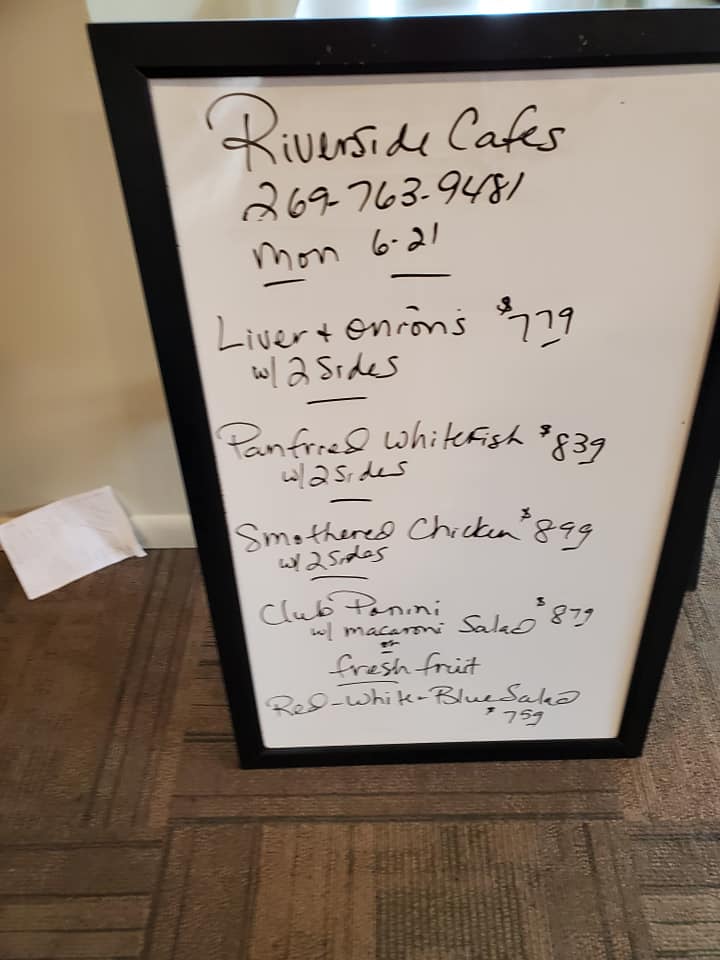 Riverside Cafes
269-763-9481
Mon 6-21
Liver + onions $779
w/ 2 Sides
Panfried Whitefish $839
w/ 2 Sides
Smothered Chicken $899
w/ 2 Sides
Club Panini
w/ macaroni Salad $879
or
fresh fruit
Red-White-Blue Salad
$759